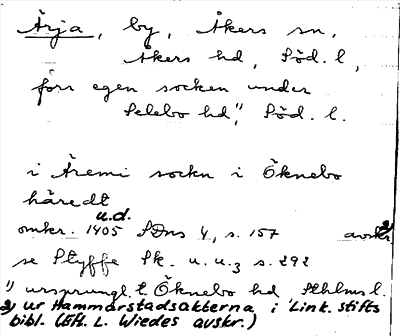 Ärja, by, Åkers sn,
Åkers hd, Söd. l,
förr egen socken under
Selebo hd,¹⁾ Söd. l.
i Äremi sockn i Öknebo
häredt
u.d.
omkr. 1405 SDns 4, s. 157 avskr. 2)
se Styffe Sk. u. u.3 s. 292
1) ursprungl. t. Öknebo hd Sthlms l.
2) ur Hammarstadsakterna i Link. stifts
bibl. (Eft. L. Wiedes avskr.)